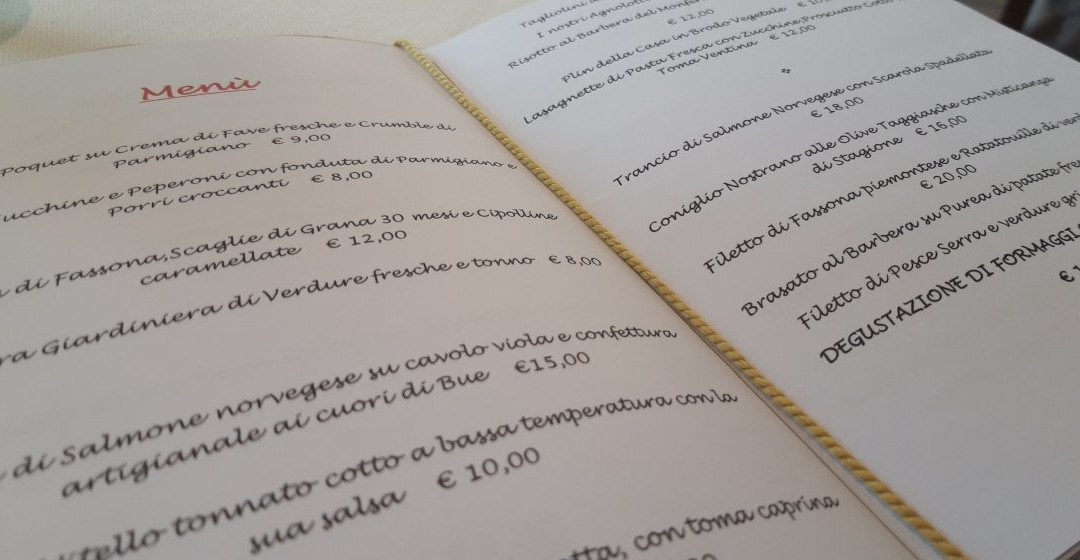 Menù
Poquet su Crema di Fave fresche e Crumble di
Parmigiano € 9,00
e Peperoni con fonduta di Parmigiano e
Porri croccanti € 8,00
di Fassona,Scaglie di Grana 30 mesi e Cipolline
caramellate € 12,00
Giardiniera di Verdure fresche e tonno € 8,00
di Salmone norvegese su cavolo viola e confettura
artigianale ai cuori di Bue €15,00
tonnato cotto a bassa temperatura con la
sua salsa € 10,00
con toma caprina
Tagliolini
I nostri Agnolotti
€ 12,00
Risotto al Barbera del
Plin della Casa in Brodo Vegetale €
Lasagnette di Pasta Fresca con Zucchine,Prosciutto Cotto
Toma Ventina € 12,00
Trancio di Salmone Norvegese con Scarola Spadellata
€ 18,00
Coniglio Nostrano alle Olive Taggiasche con Misticanza
di Stagione € 16,00
Filetto di Fassona piemontese e Ratatouille di
€ 20,00
Brasato al Barbera su Purea di patate
Filetto di Pesce Serra e verdure
DEGUSTAZIONE DI FORMAGGI
€